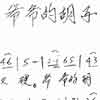 爷爷的胡子
46 | 5 - | 65 | 43
硬。爷爷的